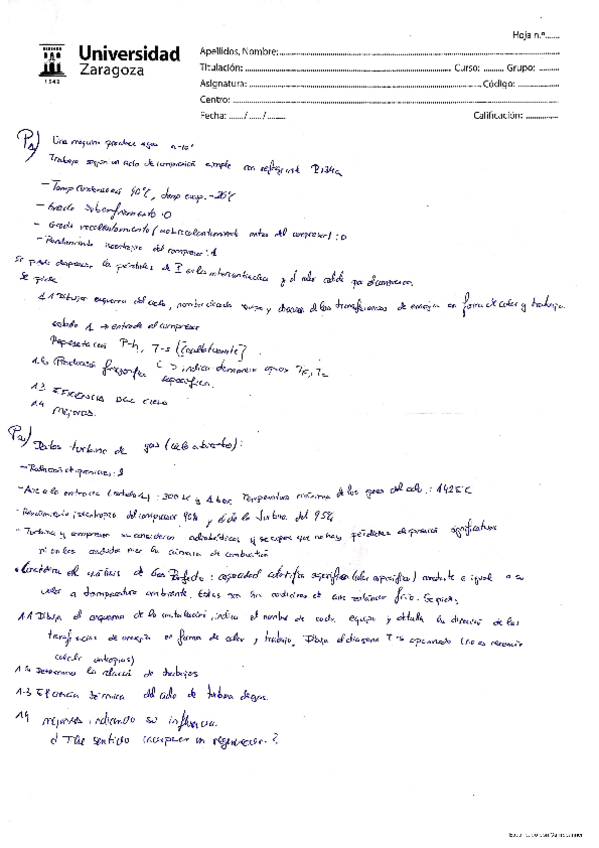 Hoja n.º......
Universidad
Zaragoza
1542
Apellidos, Nombre:
Titulación: Curso: Grupo:
Asignatura: Código:
Centro:
Fecha: ....../....../...... Calificación:
P1) Una maquina produce agua a -10º
Trabaja según un ciclo de compresión simple con refrigerante R134a
- Temp condensación 40ºC, temp evap. -20ºC
- Grado subenfriamiento: 0
- Grado recalentamiento (sobrecalentamiento antes del compresor): 0
- Rendimiento isentropico del compresor: 1
Se puede despreciar las pérdidas de P en los intercambiadores y el calor cedido por el compresor.
Se pide
1.1 Dibujar esquema del ciclo, nombre de cada equipo y direccion de las transferencias de energía en forma de calor y trabajo.
estado 1 → entrada al compresor
Representacion P-h, T-s
1.2 Producción frigorifica específica
1.3 EFICIENCIA DEL CICLO
1.4 mejoras.
P2) Datos turbina de gas (ciclo abierto):
- Relación de presiones:
- Aire a la entrada (estado 1): 300 K y 1 bar. Temperatura máxima de los gases del ciclo: 1425ºC
- Rendimiento isentropico del compresor 90% y el de la turbina del 95%
- Turbina y compresor se consideran adiabáticos y se supone que no hay pérdidas de presión significativas
ni en los conductos ni en la cámara de combustión
constante e igual a su
valor a temperatura ambiente. Estas son las condiciones de aire estándar frío. Se pide:
1.1 Dibuja el esquema de la instalación, indica el nombre de cada equipo y detalla la dirección de las
transferencias de energía en forma de calor y trabajo. Dibuja el diagrama T-s (no es necesario
calcular entropías)
1.2 Determinar la relación de trabajos
1.3 Eficiencia térmica del ciclo de turbina de gas.
1.4 mejoras, indicando su influencia.
¿Tiene sentido incorporar un regenerador?